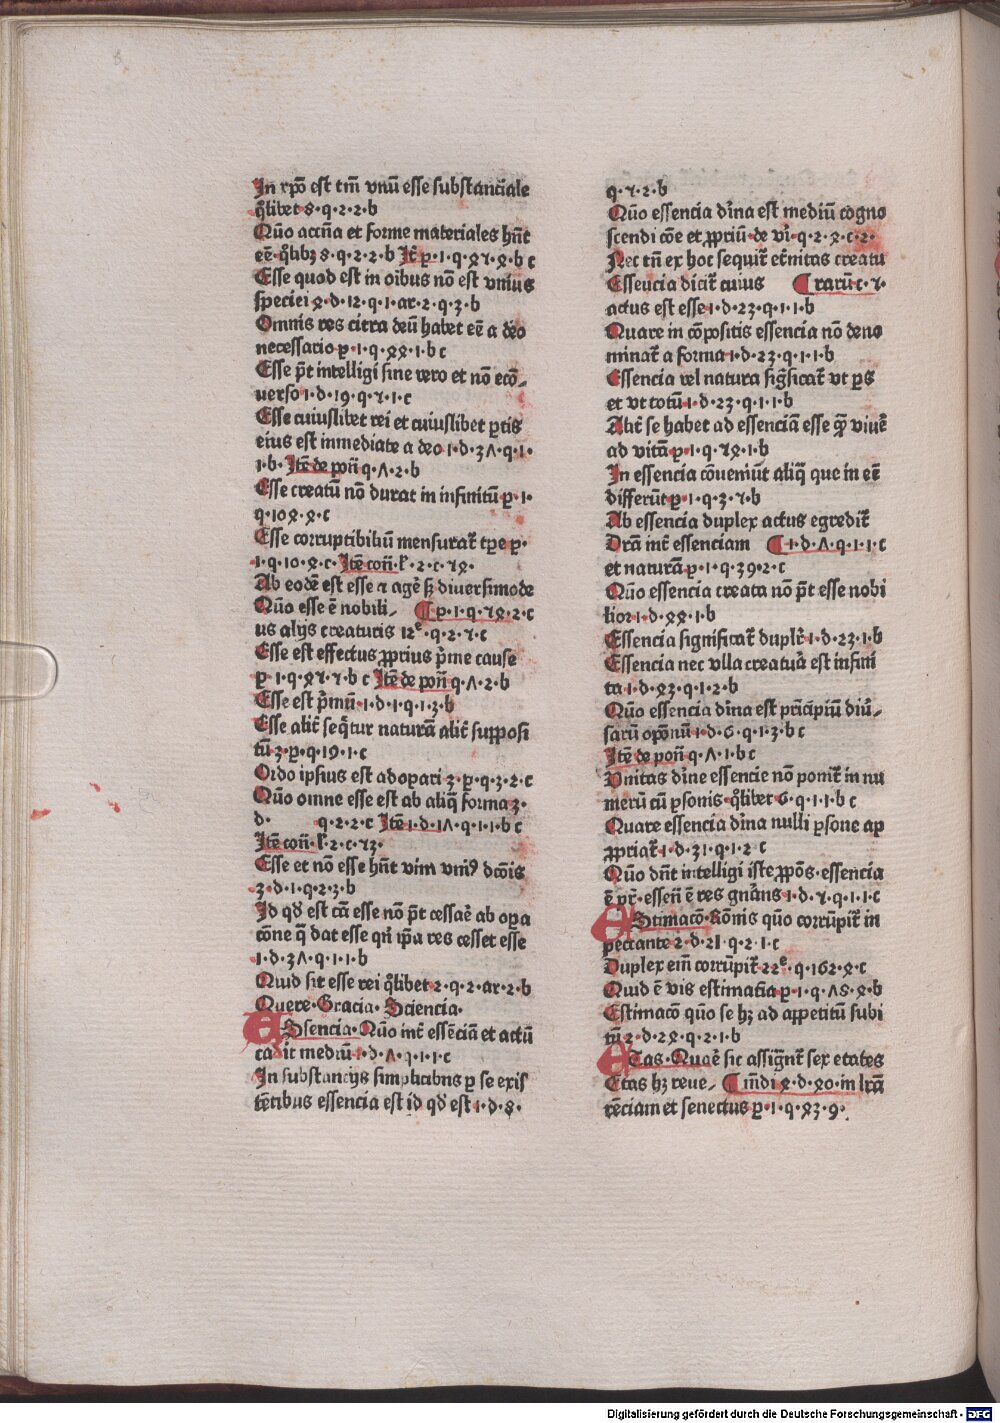 In xpō est tm̄ vnū esse substanciale
q̄libet 8·q·2·2·b
Quō accn̄a et forme materiales hn̄t
eē·q̄libꝫ 8·q·2·2·b Itē p·1·q·ꝝ7·ꝝ·b c
Esse quod est in oībus nō est vnius
speciei ꝝ·d·12·q·1·ar·2·q·3·b
Omnis res citra deū habet eē a deo
necessario p·1·q·ꝝꝝ·1·b c
Esse p̄t intelligi sine vero et nō ecō-
uerso 1·d·19·q·7·1·c
Esse cuiuslibet rei et cuiuslibet ꝑtis
eius est inmediate a deo 1·d·3Λ·q·1·
1·b· Itē de pōn q·Λ·2·b
Esse creatū nō durat in infinitū p·1·
q·10ꝝ·ꝝ·c
Esse corruptibiliū mensurat᷑ tꝑe p·
1·q·10·ꝝ·c· Itē con̄·l·2·c·7ꝝ·
Ab eodē est esse ⁊ agē sꝫ diuersimode
Quō esse ē nobili- ¶ p·1·q·7ꝝ·2·c
us alijs creaturis 12ᵉ·q·2·7·c
Esse est effectus ꝓprius p̄me cause
p·1·q·ꝝ7·7·b c Itē de pōn q·Λ·2·b
Esse est p̄mū·1·d·1·q·1·3·b
Esse alit̄ seq̄tur naturā alit̄ supposi
tū 3·p·q·19·1·c
Ordo ipsius est ad oꝑari 3·p·q·3·2·c
Quō omne esse est ab aliq̄ forma 3·
d· q·2·2·c Itē 1·d·1Λ·q·1·1·b c
Itē con̄·l·2·c·73·
Esse et nō esse hn̄t vim vniꝰ dcōis
3·d·1·q·2·3·b
Id qd̄ est cā esse nō p̄t cessaē ab oꝑa
cōne q̄ dat esse qn̄ ip̄a res cesset esse
1·d·3Λ·q·1·1·b
Quid sit esse rei q̄libet 2·q·2·ar·2·b
Quere·Gracia·Sciencia·
ESsencia·Quō int̄ essēciā et actū
cadit mediū 1·d·Λ·q·1·1·c
In substancijs simplicibus ꝑ se exis
tētibus essencia est id qd̄ est 1·d·8·
q·7·2·b
Quō essencia dīna est mediū cogno
scendi cōe et ꝓpriū·de vi·q·2·ꝝ·c·2·
Nec tn̄ ex hoc sequit᷑ et̄nitas creatu
Essencia dicit᷑ cuius ¶ rarū c·7·
actus est esse 1·d·23·q·1·1·b
Quare in cōpositis essencia nō deno
minat᷑ a forma 1·d·23·q·1·1·b
Essencia vel natura siḡficat᷑ vt ꝑs
et vt totū 1·d·23·q·1·1·b
Alit̄ se habet ad essenciā esse q̄ viuē
ad vitā p·1·q·7ꝝ·1·b
In essencia cōueniūt aliq̄ que in eē
differūt p·1·q·3·7·b
Ab essencia duplex actus egredit᷑
Drā int̄ essenciam ¶ 1·d·Λ·q·1·1·c
et naturā p·1·q·39·2·c
Quō essencia creata nō p̄t esse nobi
lior 1·d·ꝝꝝ·1·b
Essencia significat᷑ duplr̄ 1·d·23·1·b
Essencia nec vlla creatura est infini
ta 1·d·ꝝ3·q·1·2·b
Quō essencia dīna est prīcipiū diū-
sarū oꝑonū 1·d·6·q·1·3·b c
Itē de pōn q·Λ·1·b c
Vnitas dīne essencie nō ponit᷑ in nu
merū cū ꝑsonis·q̄libet 6·q·1·1·b c
Quare essencia dīna nulli ꝑsone ap
ꝓpriat᷑ 1·d·31·q·1·2·c
Quō dn̄t intelligi iste ꝓpōs·essencia
ē pr̄·essen̄ ē res gn̄ans 1·d·7·q·1·1·c
EStimacō·Rōnis quō corrūpit᷑ in
peccante 2·d·21·q·2·1·c
Duplex eīn corrūpit᷑ 22ᵉ·q·162·ꝝ·c
Quid ē vis estimatīa p·1·q·Λ8·ꝝ·b
Estimacō quō se hꝫ ad appetitū subi
tū 2·d·2ꝝ·q·2·1·b
ETas·Quaē sic assignt᷑ sex etates
Etas hꝫ reue- ¶ mūdi ꝝ·d·ꝝ0·in lrā
rēciam et senectus p·1·q·ꝝ3·9·
Digitalisierung gefördert durch die Deutsche Forschungsgemeinschaft - DFG